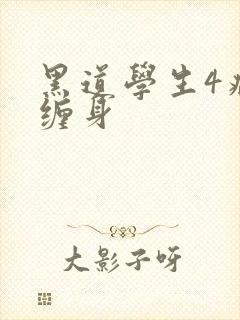 黑道學生4
缠身
大影子呀